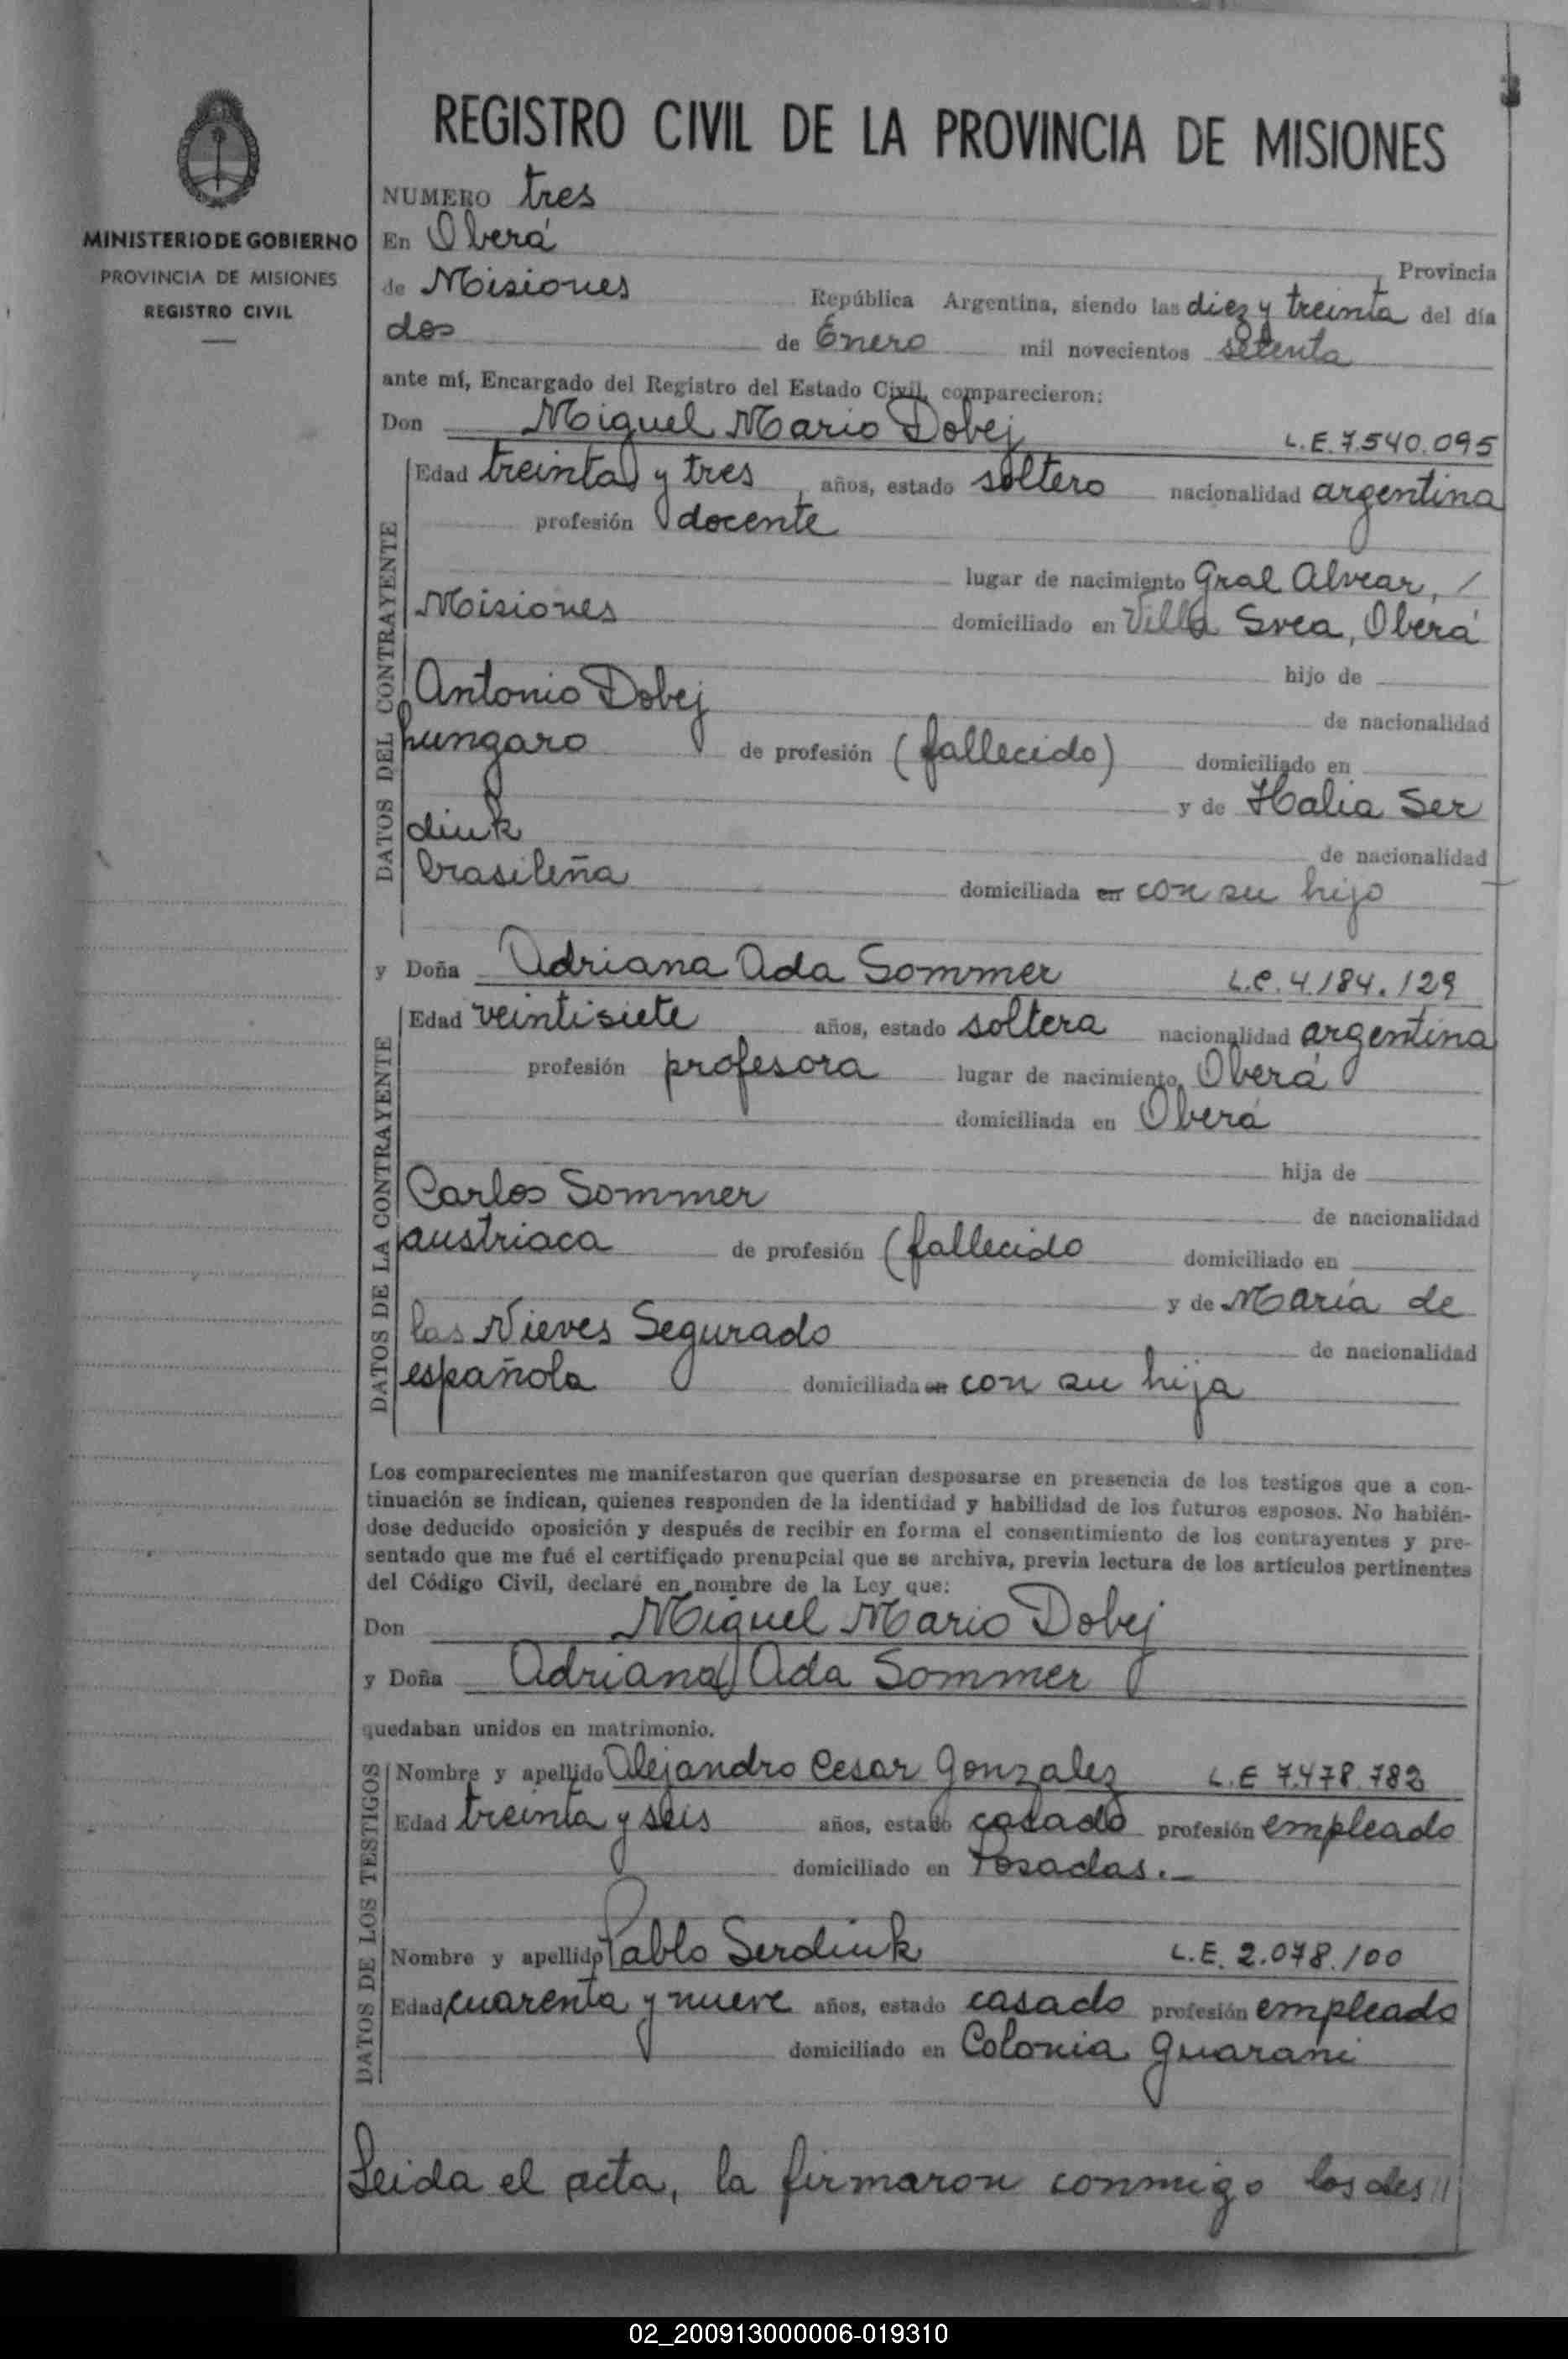 REGISTRO CIVIL DE LA PROVINCIA DE MISIONES
MINISTERIO DE GOBIERNO
PROVINCIA DE MISIONES
REGISTRO CIVIL
NUMERO tres
En Oberá, Provincia
de Misiones República Argentina, siendo las diez y treinta del día
dos de Enero mil novecientos setenta
ante mí, Encargado del Registro del Estado Civil, comparecieron:
Don Miguel Mario Dobej L.E. 7.540.095
DATOS DEL CONTRAYENTE
Edad treinta y tres, años, estado soltero nacionalidad argentina
profesión docente
lugar de nacimiento Gral Alvear, /
Misiones domiciliado en Villa Svea, Oberá
hijo de
Antonio Dobej de nacionalidad
hungaro de profesión (fallecido) domiciliado en
y de Halia Ser
diuk de nacionalidad
brasileña domiciliada en con su hijo
y Doña Adriana Ada Sommer L.C. 4.184.129
DATOS DE LA CONTRAYENTE
Edad veintisiete años, estado soltera nacionalidad argentina
profesión profesora lugar de nacimiento Oberá
domiciliada en Oberá
hija de
Carlos Sommer de nacionalidad
austriaca de profesión (fallecido domiciliado en
y de María de
las Nieves Segurado de nacionalidad
española domiciliada en con su hija
Los comparecientes me manifestaron que querían desposarse en presencia de los testigos que a con-
tinuación se indican, quienes responden de la identidad y habilidad de los futuros esposos. No habién-
dose deducido oposición y después de recibir en forma el consentimiento de los contrayentes y pre-
sentado que me fué el certificado prenupcial que se archiva, previa lectura de los artículos pertinentes
del Código Civil, declaré en nombre de la Ley que:
Don Miguel Mario Dobej
y Doña Adriana Ada Sommer
quedaban unidos en matrimonio.
DATOS DE LOS TESTIGOS
Nombre y apellido Alejandro Cesar Gonzalez L.E 7.478.782
Edad treinta y seis años, estado casado profesión empleado
domiciliado en Posadas.
Nombre y apellido Pablo Serdiuk L.E. 2.078.100
Edad cuarenta y nueve años, estado casado profesión empleado
domiciliado en Colonia Guarani
Leida el acta, la firmaron conmigo los des //
02_200913000006-019310